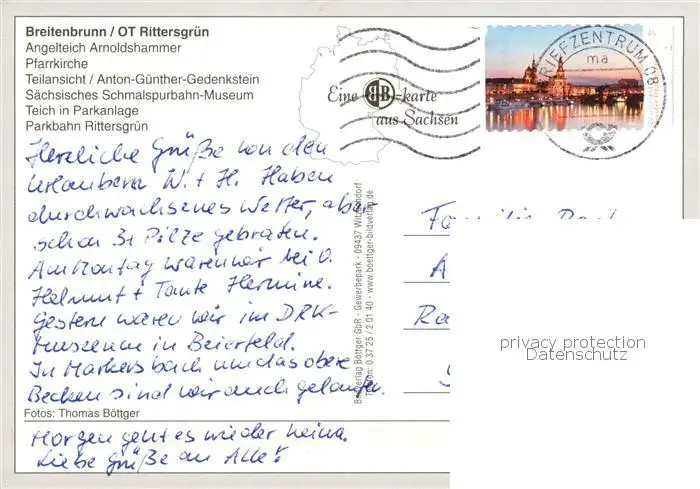 Breitenbrunn / OT Rittersgrün
Angelteich Arnoldshammer
Pfarrkirche
Teilansicht / Anton-Günther-Gedenkstein
Sächsisches Schmalspurbahn-Museum
Teich in Parkanlage
Parkbahn Rittersgrün
Eine BB-karte
aus Sachsen
BRIEFZENTRUM 08
ma
45
Herzliche Grüße von den
Urlaubern W. + H. Haben
durchwachsenes Wetter, aber
schon 3x Pilze gebraten.
Am Montag waren wir bei O.
Helmut + Tante Hermine.
Gestern waren wir im DRK-
Museum in Beierfeld.
In Markersbach um das obere
Becken sind wir auch gelaufen.
Fotos: Thomas Böttger
Morgen geht es wieder heim.
Liebe Grüße an Alle!
Bildverlag Böttger GbR - Gewerbepark - 09437 Witzschdorf
Telefon: 0 37 25 / 2 01 40 - www.boettger-bildverlag.de
Familie
A
Ra
privacy protection
Datenschutz